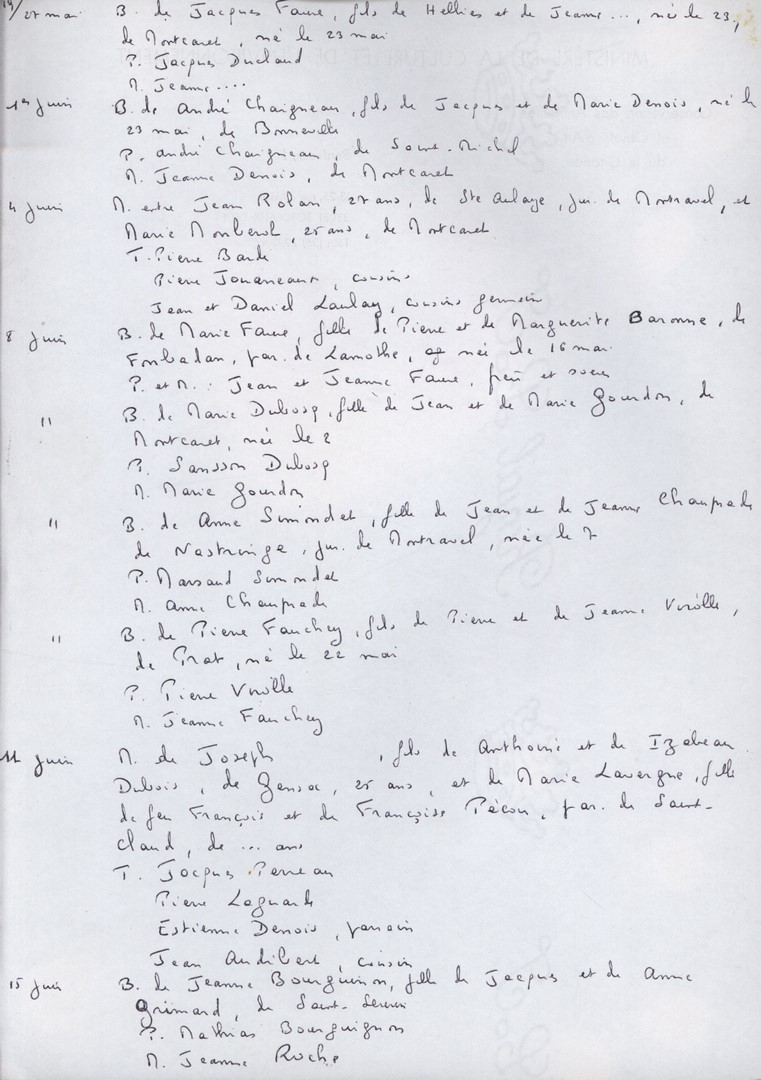 27 mai B. de Jacques Faure, fils de Hellies et de Jeanne ..., né le 23,
de Montcaret, né le 23 mai
P. Jacques Duclaud
M. Jeanne ....
1er juin B. de André Chaigneau, fils de Jacques et de Marie Denois, né le
23 mai, de Bonneville
P. André Chaigneau, de Saint-Michel
M. Jeanne Denois, de Montcaret
4 juin M. entre Jean Rolan, 27 ans, de Ste Aulaye, jur. de Montravel, et
Marie, 25 ans, de Montcaret
T. Pierre Barde
Pierre Jouaneaux, cousins
Jean et Daniel Laulan, cousins germain
8 juin B. de Marie Faure, fille de Pierre et de Marguerite Baronne, de
Fonbadan, par. de Lamothe, née le 16 mai
P. et M. : Jean et Jeanne Faure, frère et soeur
11 B. de Marie Dubosq, fille de Jean et de Marie Gourdon, de
Montcaret, née le 2
P. Sansson Dubosq
M. Marie Gourdon
11 B. de Anne Simondet, fille de Jean et de Jeanne Chauprade
de Nastringe, jur. de Montravel, née le 7
P. Marsaud Simondet
M. Anne Chauprade
11 B. de Pierre Fauchey, fils de Pierre et de Jeanne Virolle,
de Prat, né le 22 mai
P. Pierre Virolle
M. Jeanne Fauchey
11 juin M. de Joseph , fils de Anthoine et de Izabeau
Dubois, de Gensac, 25 ans, et de Marie Lavergne, fille
de feu François et de Françoise Pécou, par. de Saint-
Claud, de ... ans
T. Jacques Perreau
Pierre Laguarde
Estienne Denois, parrain
Jean Audibert, cousin
15 juin B. de Jeanne Bourguinon, fille de Jacques et de Anne
Grimard, de Saint-Seurin
P. Mathias Bourguignon
M. Jeanne Roche